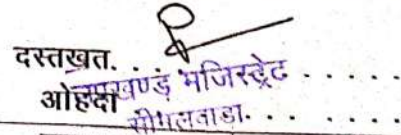 दस्तखत. . . .
ओहदा उपखण्ड मजिस्ट्रेट . . . . .
सीमलवाडा. . . . . .